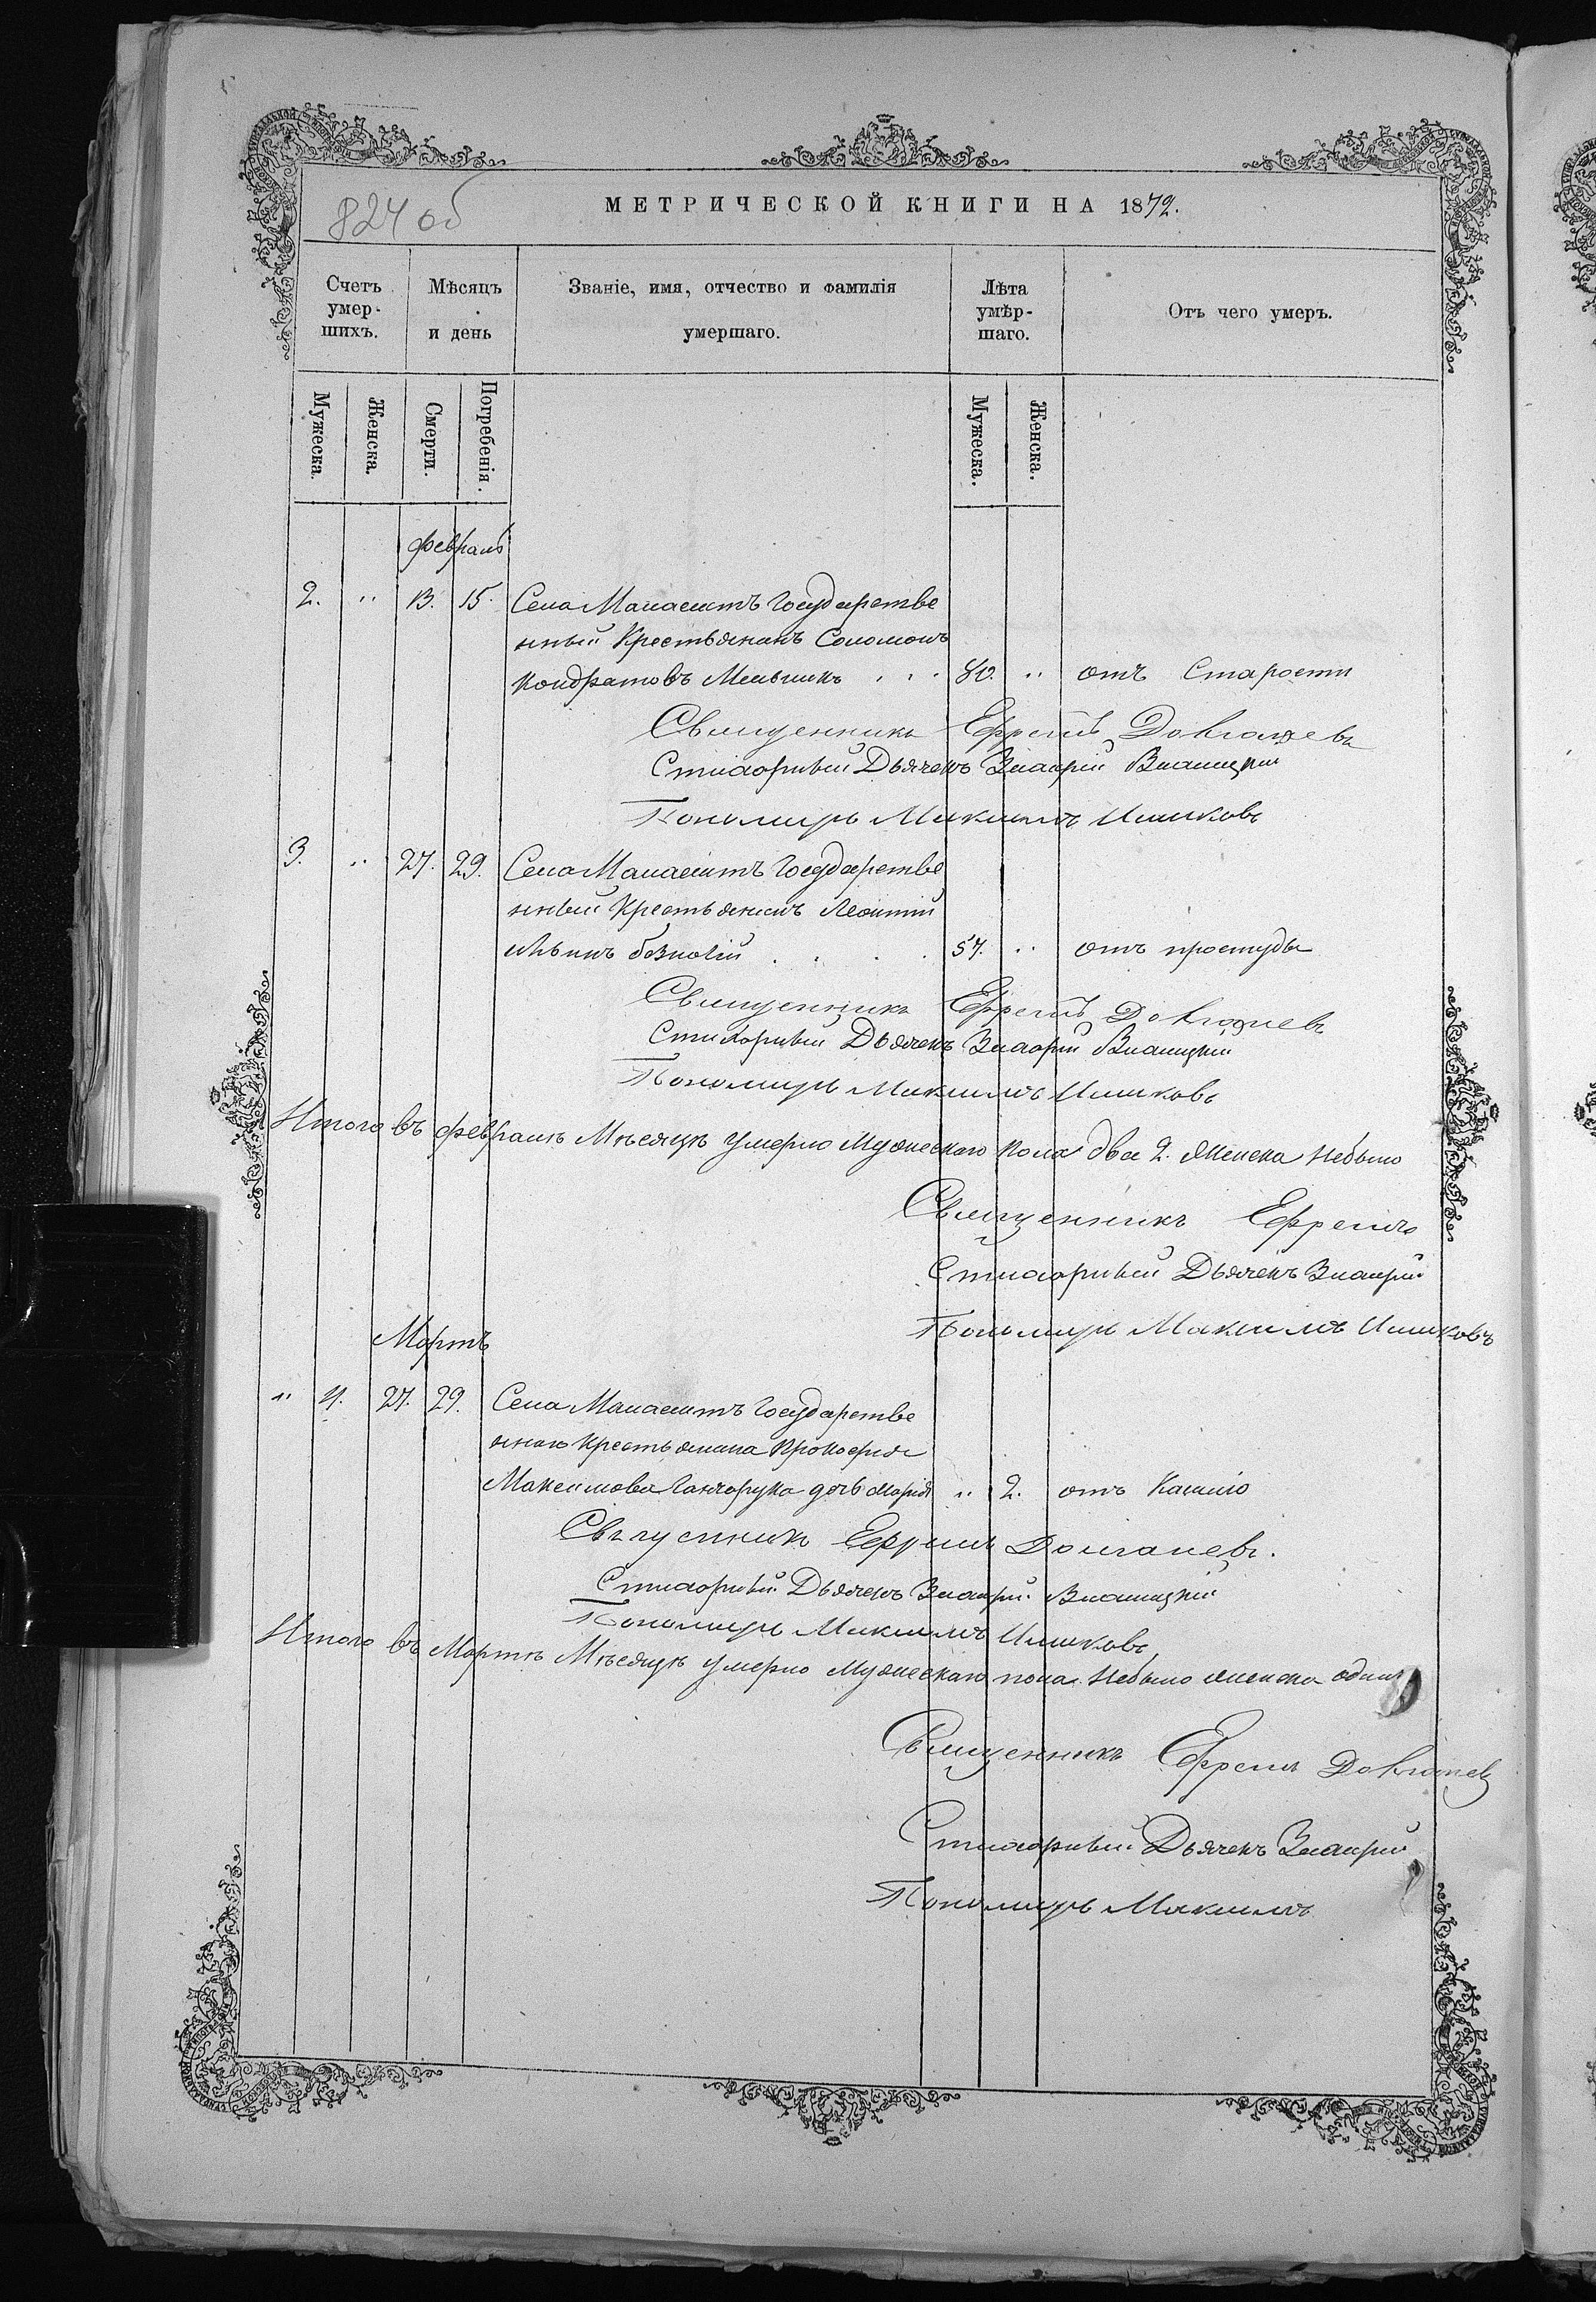 824 об
МЕТРИЧЕСКОЙ КНИГИ НА 1872.
Счетъ умер-шихъ.
Мѣсяцъ и день
Званіе, имя, отчество и фамилія умершаго.
Лѣта умѣр-шаго.
Отъ чего умеръ.
Мужеска.
Женска.
Смерти.
Погребенія.
Мужеска.
Женска.
февраль
2. " 13. 15. Села Манашитъ Государстве
нный Крестьянинъ Соломонъ
Кондратовъ Мельникъ . . . 80. " отъ Старости
Священникъ Ефремъ
Стихорный Дьячекъ
Пономарь Максимъ
3. " 27. 29. Села Манашитъ Государстве
нный Крестьянинъ Леонтій
Ильинъ . . . . 57. " отъ простуды
Священникъ Ефремъ
Стихорный Дьячекъ
Пономарь Максимъ
Итого въ февралѣ Мѣсяцѣ умерло Мужескаго пола два 2. Женска Небыло
Священникъ Ефремъ
Стихорный Дьячекъ
Пономарь Максимъ
Мартъ
" 4. 27. 29. Села Манашитъ Государстве
ннаго Крестьянина Прокофія
Максимова Ганчарука дочь Марія " 2. отъ Кашлю
Священникъ Ефремъ
Стихорный Дьячекъ
Пономарь Максимъ
Итого въ Мартѣ Мѣсяцѣ умерло Мужескаго пола Небыло женска одна
Священникъ Ефремъ
Стихорный Дьячекъ
Пономарь Максимъ